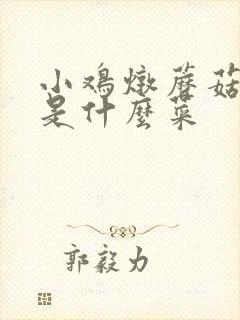 小鸡燉蘑菇
是什麼菜
郭毅力